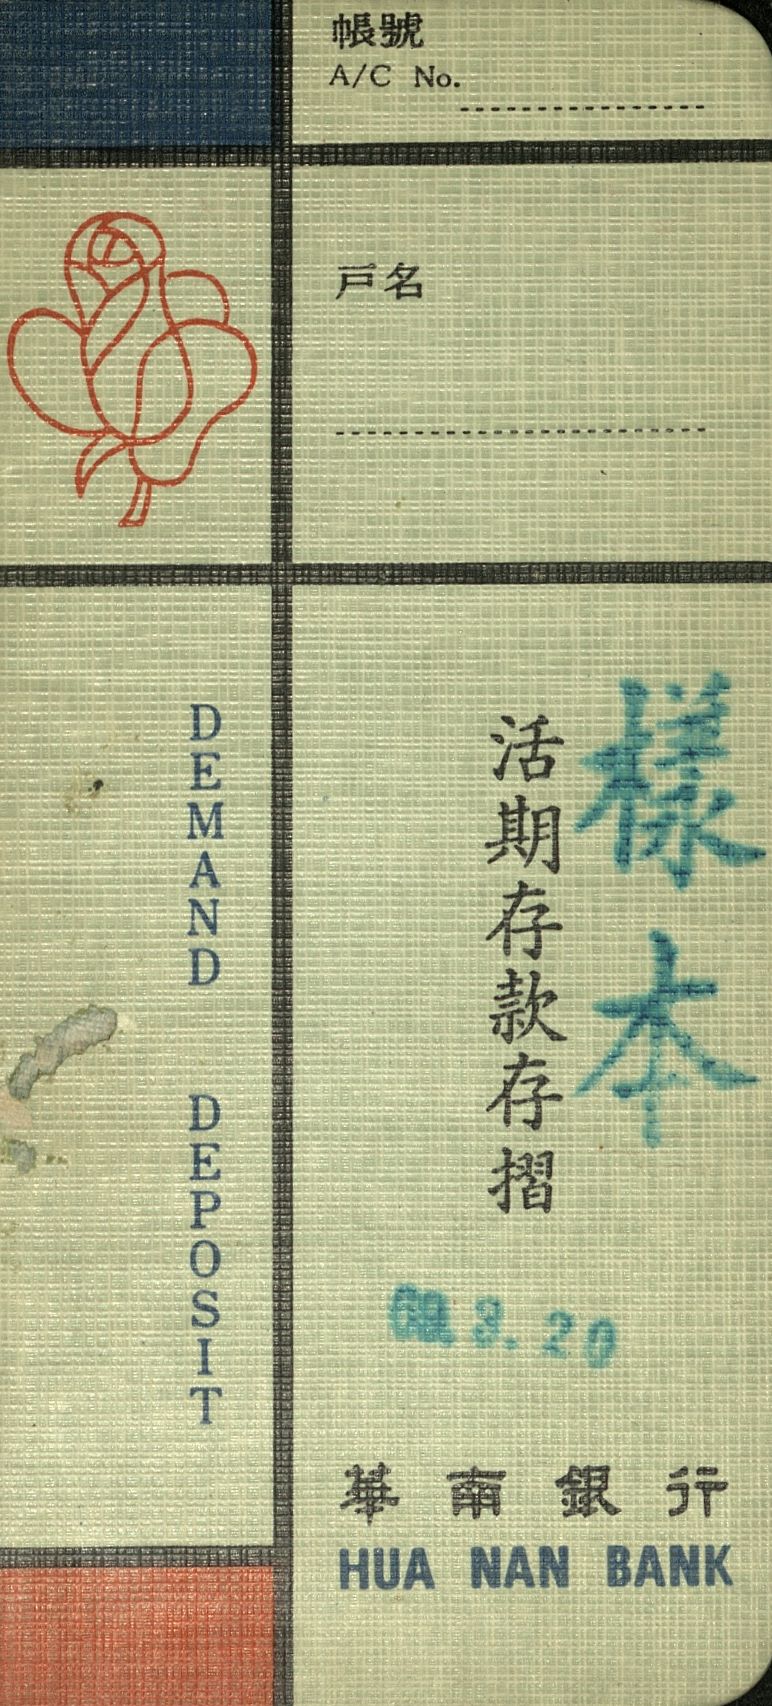 帳號
A/C No.
戶名
樣本
活期存款存摺
DEMAND DEPOSIT
69. 3. 20
華南銀行
HUA NAN BANK